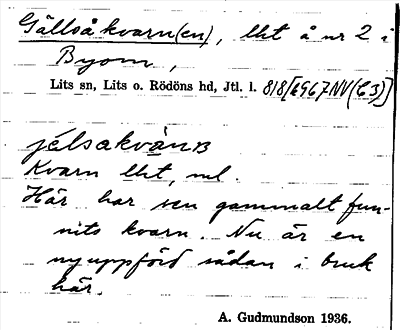 Gällsåkvarn(en), lht å nr 2 i
Byom,
Lits sn, Lits o. Rödöns hd, Jtl. l. 818[6967NV(C3)]
jélsakvànB
Kvarn lht, ml.
Här har sen gammalt fun-
nits kvarn. Nu är en
nyuppförd sådan i bruk
här.
A. Gudmundson 1936.